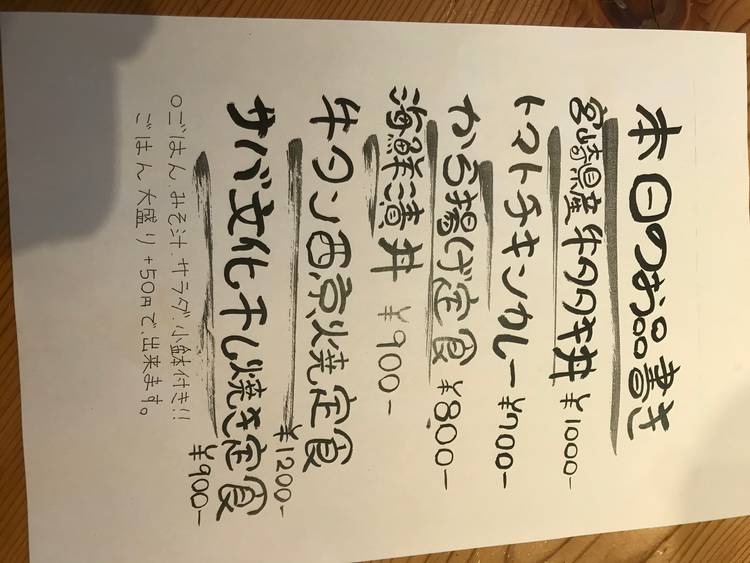 本日のお品書き
宮崎県産牛タタキ丼 ¥1000-
トマトチキンカレー ¥700-
から揚げ定食 ¥800-
海鮮漬丼 ¥900-
牛タン西京焼定食 ¥1200-
サバ文化干し焼き定食 ¥900-
○ごはん.みそ汁.サラダ.小鉢付き!!
ごはん大盛り+50円で.出来ます。